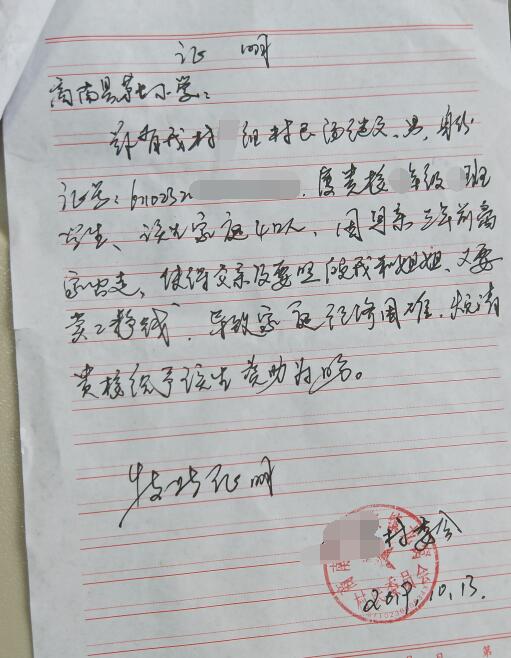 证 明
商南县第七小学：
兹有我村 组村民 男，身份
证号：6110232 系贵校 年级 班
学生、该生家庭4口人，因母亲三年前离
家出走，使得父亲既要照顾我和姐姐、又要
卖工挣钱，导致家庭经济困难，烦请
贵校给予该生资助为盼。
特此证明
村委会
2019.10.13.